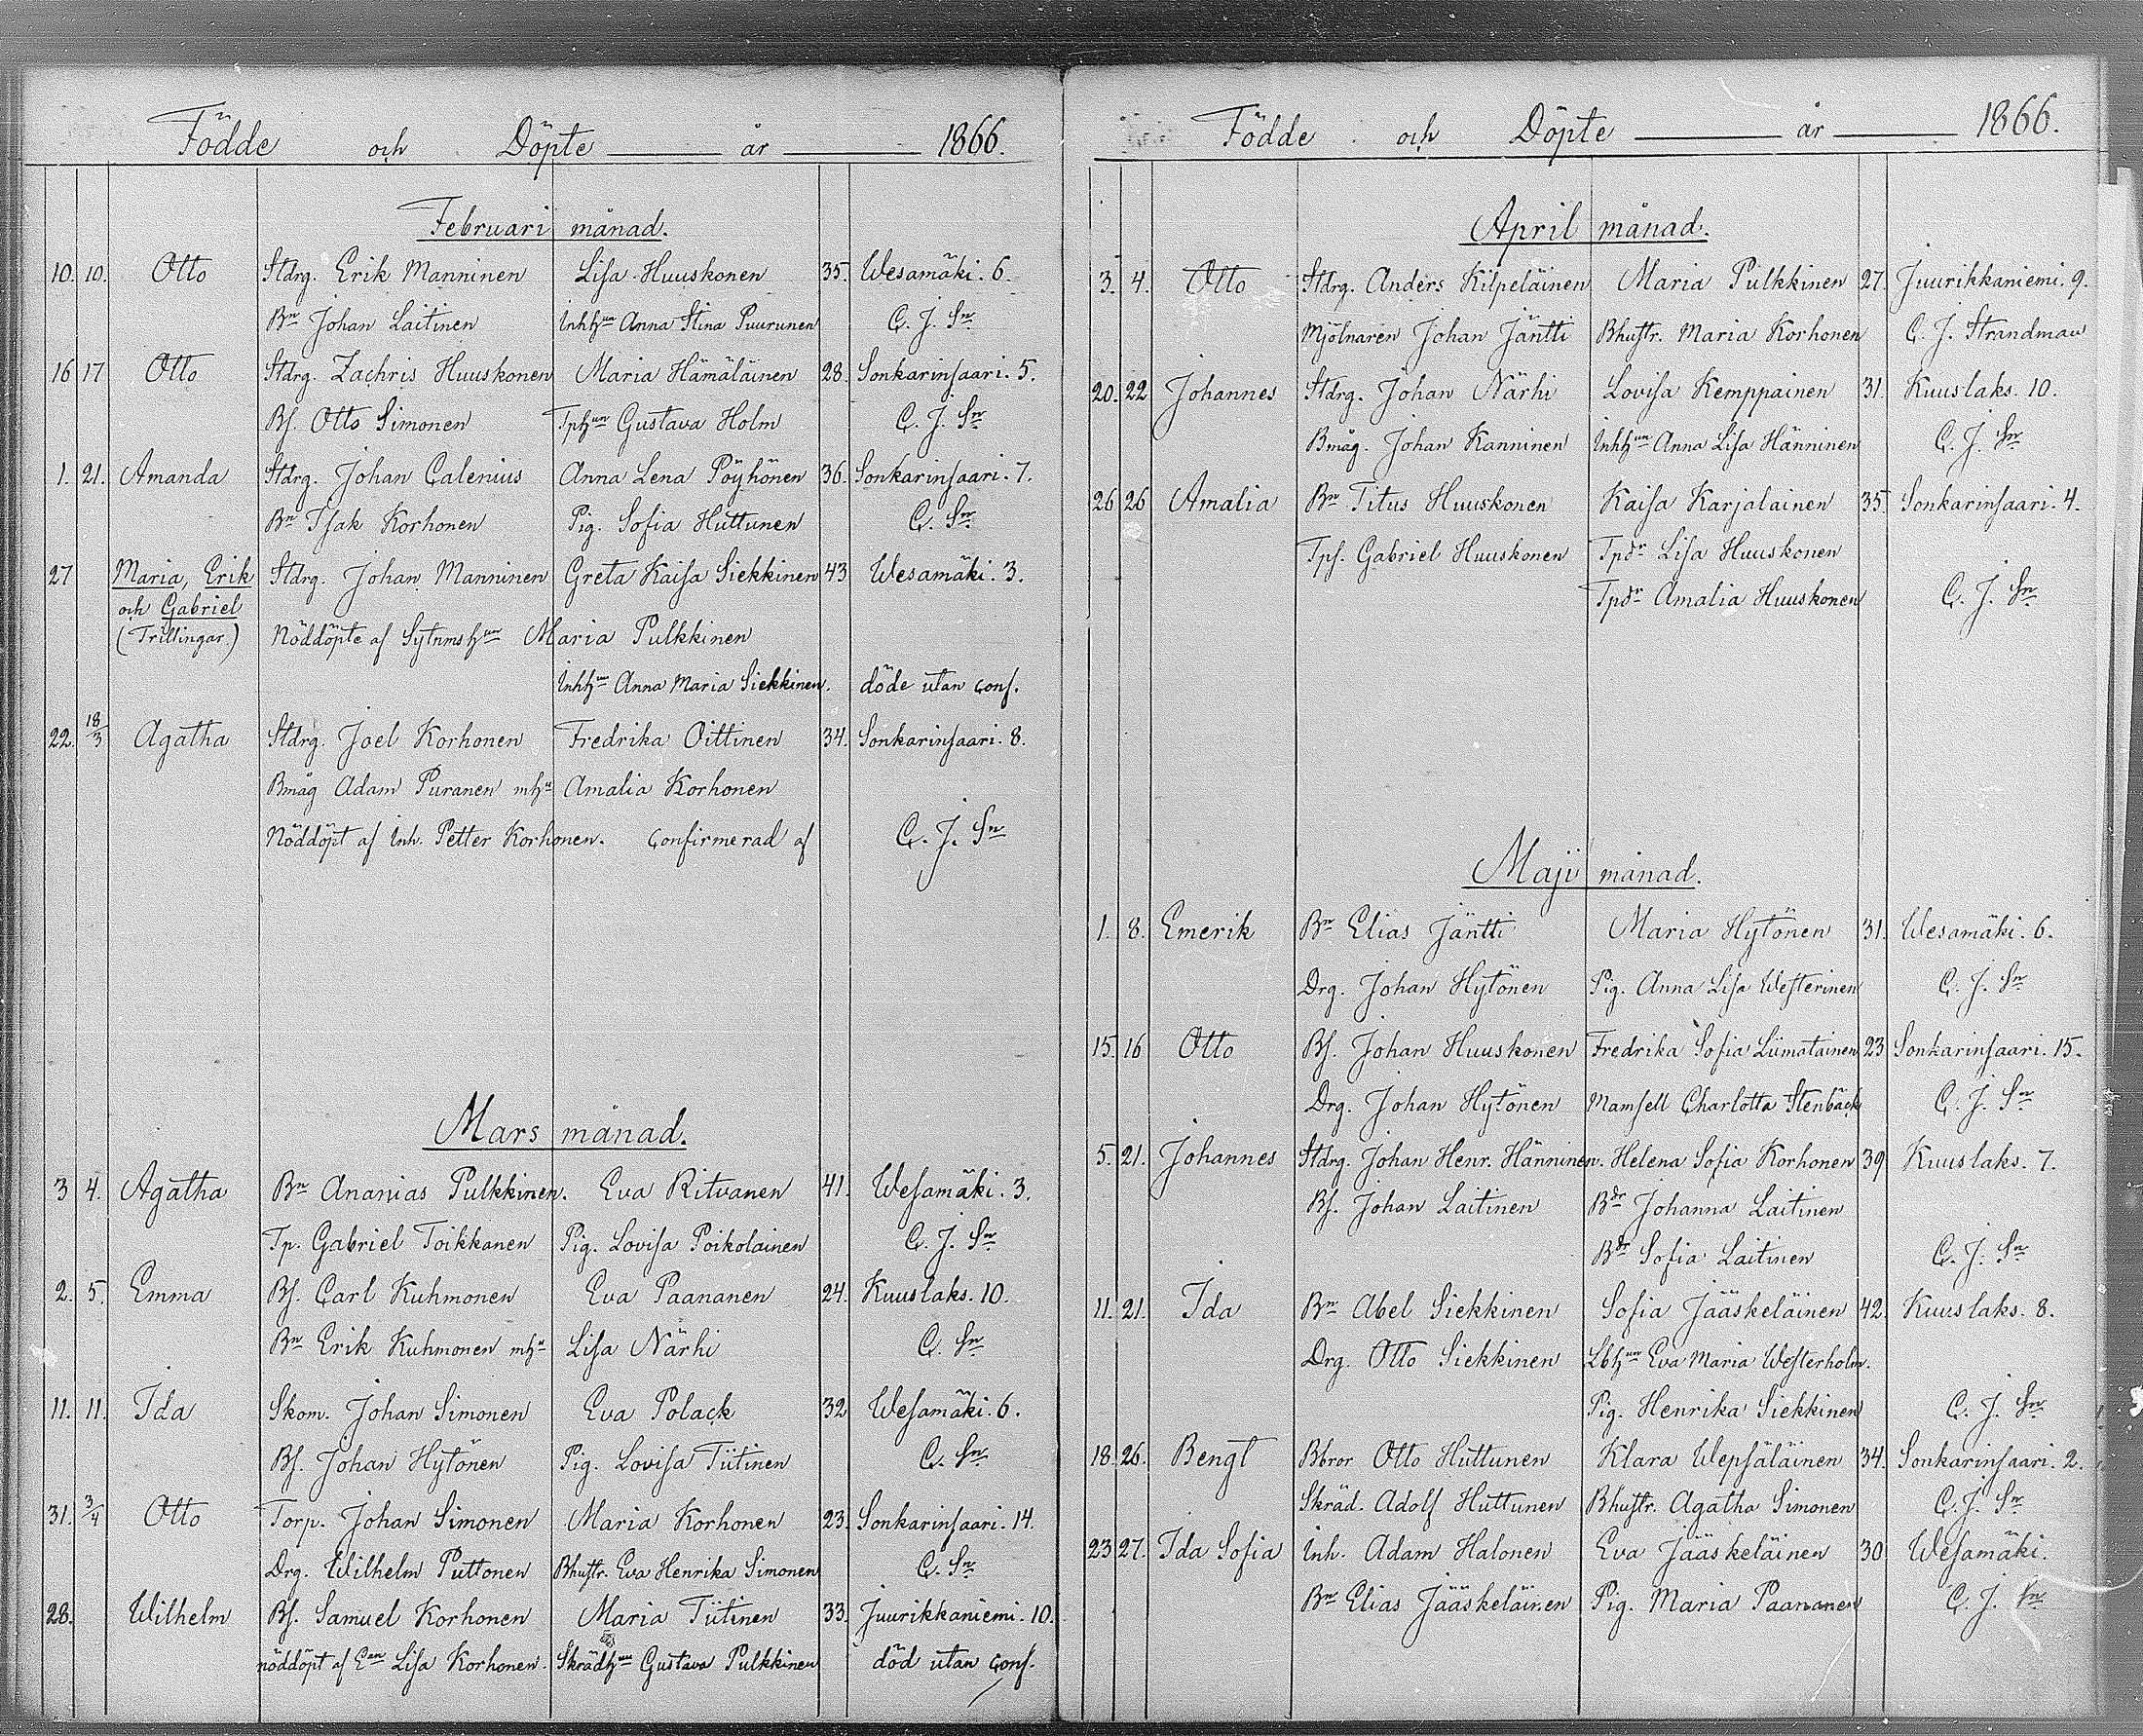 Födde och Döpte år 1866.
Februari månad.
10. 10. Otto Stdrg. Erik Manninen Lisa Huuskonen 35. Wesamäki. 6.
Bn Johan Laitinen Inhhun Anna Stina Puurunen C. J. Sn
16 17 Otto Stdrg. Zachris Huuskonen Maria Hämäläinen 28. Sonkarinsaari. 5.
Bs. Otto Simonen Tphun Gustava Holm C. J. Sn
1. 21. Amanda Stdrg. Johan Calenius Anna Lena Pöyhönen 36. Sonkarinsaari. 7.
Bn Isak Korhonen Pig. Sofia Huttunen C. Sn
27 Maria, Erik Stdrg. Johan Manninen Greta Kaisa Siekkinen 43 Wesamäki. 3.
och Gabriel
(Trillingar.) Nöddöpte af Sytnmshun Maria Pulkkinen
Inhhun Anna Maria Siekkinen. döde utan conf.
22. 18/3 Agatha Stdrg. Joel Korhonen Fredrika Oittinen 34. Sonkarinsaari. 8.
Bmåg Adam Puranen mhu Amalia Korhonen
Nöddöpt af Inh. Petter Korhonen. Confirmerad af C. J. Sn
Mars månad.
3 4. Agatha Bn Ananias Pulkkinen. Eva Ritvanen 41. Wesamäki. 3.
Tp. Gabriel Toikkanen Pig. Lovisa Poikolainen C. J. Sn
2. 5. Emma Bs. Carl Kuhmonen Eva Paananen 24. Kuuslaks. 10.
Bn Erik Kuhmonen mhu Lisa Närhi C. Sn
11. 11. Ida Skom. Johan Simonen Eva Polack 32 Wesamäki. 6.
Bs. Johan Hytönen Pig. Lovisa Tiitinen C. Sn
31. 3/4 Otto Torp. Johan Simonen Maria Korhonen 23. Sonkarinsaari. 14.
Drg. Wilhelm Puttonen Bhustr. Eva Henrika Simonen C. Sn
28. Wilhelm Bs. Samuel Korhonen Maria Tiitinen 33. Juurikkaniemi. 10.
nöddöpt af Lisa Korhonen. Skrädhun Gustava Pulkkinen död utan conf.
Födde och Döpte år 1866.
April månad.
3. 4. Otto Stdrg. Anders Kilpeläinen Maria Pulkkinen 27. Juurikkaniemi. 9.
Mjölnaren Johan Jäntti Bhustr. Maria Korhonen C. J. Strandman
20. 22 Johannes Stdrg. Johan Närhi Lovisa Kemppainen 31. Kuuslaks. 10.
Bmåg. Johan Kanninen Inhhun Anna Lisa Hänninen C. J. Sn
26 26 Amalia Bn Titus Huuskonen Kaisa Karjalainen 35. Sonkarinsaari. 4.
Tps. Gabriel Huuskonen Tpdr Lisa Huuskonen
Tpdr Amalia Huuskonen C. J. Sn
Maji månad.
1. 8. Emerik Bn Elias Jäntti Maria Hytönen 31. Wesamäki. 6.
Drg. Johan Hytönen Pig. Anna Lisa Westerinen C. J. Sn
15. 16 Otto Bs. Johan Huuskonen Fredrika Sofia Liimatainen 23 Sonkarinsaari. 15.
Drg. Johan Hytönen Mamsell Charlotta Stenbäck C. J. Sn
5. 21. Johannes Stdrg. Johan Henr. Hänninen. Helena Sofia Korhonen 39. Kuuslaks. 7.
Bs. Johan Laitinen Bdr Johanna Laitinen
Bdr Sofia Laitinen C. J. Sn
11. 21. Ida Bn Abel Siekkinen Sofia Jääskeläinen 42. Kuuslaks. 8.
Drg. Otto Siekkinen Lbhun Eva Maria Westerholm.
Pig. Henrika Siekkinen C. J. Sn
18. 26. Bengt Bbror Otto Huttunen Klara Wepsäläinen 34. Sonkarinsaari. 2.
Skräd. Adolf Huttunen Bhustr. Agatha Simonen C. J. Sn
23 27. Ida Sofia Inh. Adam Halonen Eva Jääskeläinen 30 Wesamäki.
Bn Elias Jääskeläinen Pig. Maria Paananen C. J. Sn